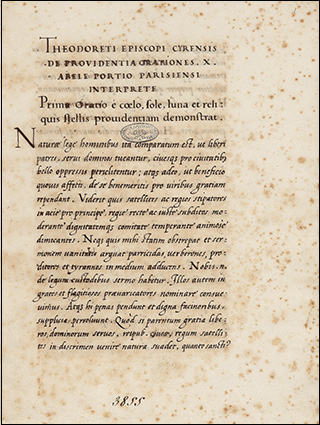 THEODORETI EPISCOPI CYRENSIS
DE PROVIDENTIA ORATIONES. X.
ABELE PORTIO PARISIENSI
INTERPRETE
Prima Oratio e cœlo, sole, luna et reli
quis stellis prouidentiam demonstrat.
Naturæ lege hominibus ita comparatum est, ut liberi
patres, serui dominos tueantur, ciuesq; pro ciuitatib;
bello oppressis periclitentur; atq; adeo, ut beneficio
quouis affecti, de se benemeritis pro viribus gratiam
rependant. Videris quis satellites ac reges stipatores
in acie pro principe, regie recte ac iuste subditos mo-
derante dignitatemq; comitate temperante animose
dimicantes. Neq; quis mihi statim obstrepat et ser-
monem uanitatis arguat parricidas, uerberones, pro-
ditores et tyrannos in medium adducens. Nobis. n.
de legum custodibus sermo habetur. Illos autem in
gratos et flagitiosos prauaricatores nominare consue
uimus. Atq; hi penas pendunt et digna facinoribus
supplicia persoluunt. Quod si parentum gratia libe-
ros, dominorum seruos, reipub. ciues, regum satelli-
tes in discrimen uenire natura suadet, quanto
3855